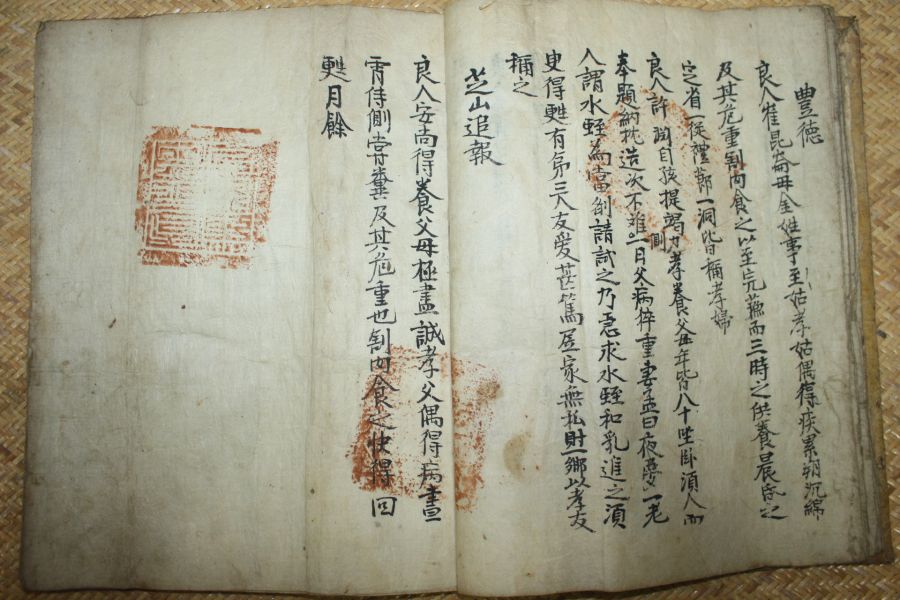 豊徳
良人崔昆崙母金姓事至姑孝姑偶得疾累朔沉綿
及其危重割肉食之以至完蘓而三時之供養晨昏之
定省一從禮節一洞皆稱孝婦
良人許 自孩提竭力孝養父母年皆八十坐卧須人而
奉 納枕造次不離側一日父病猝重妻孟曰夜夢一老
人謂水蛭為當劑請試之乃急求水蛭和乳進之須
臾得甦有弟三人友愛甚篤居家無私財一鄉以孝友
稱之
芝山追報
良人安尚得養父母極盡誠孝父偶得病晝
宵侍側嘗糞及其危重也割肉食之快得回
甦月餘